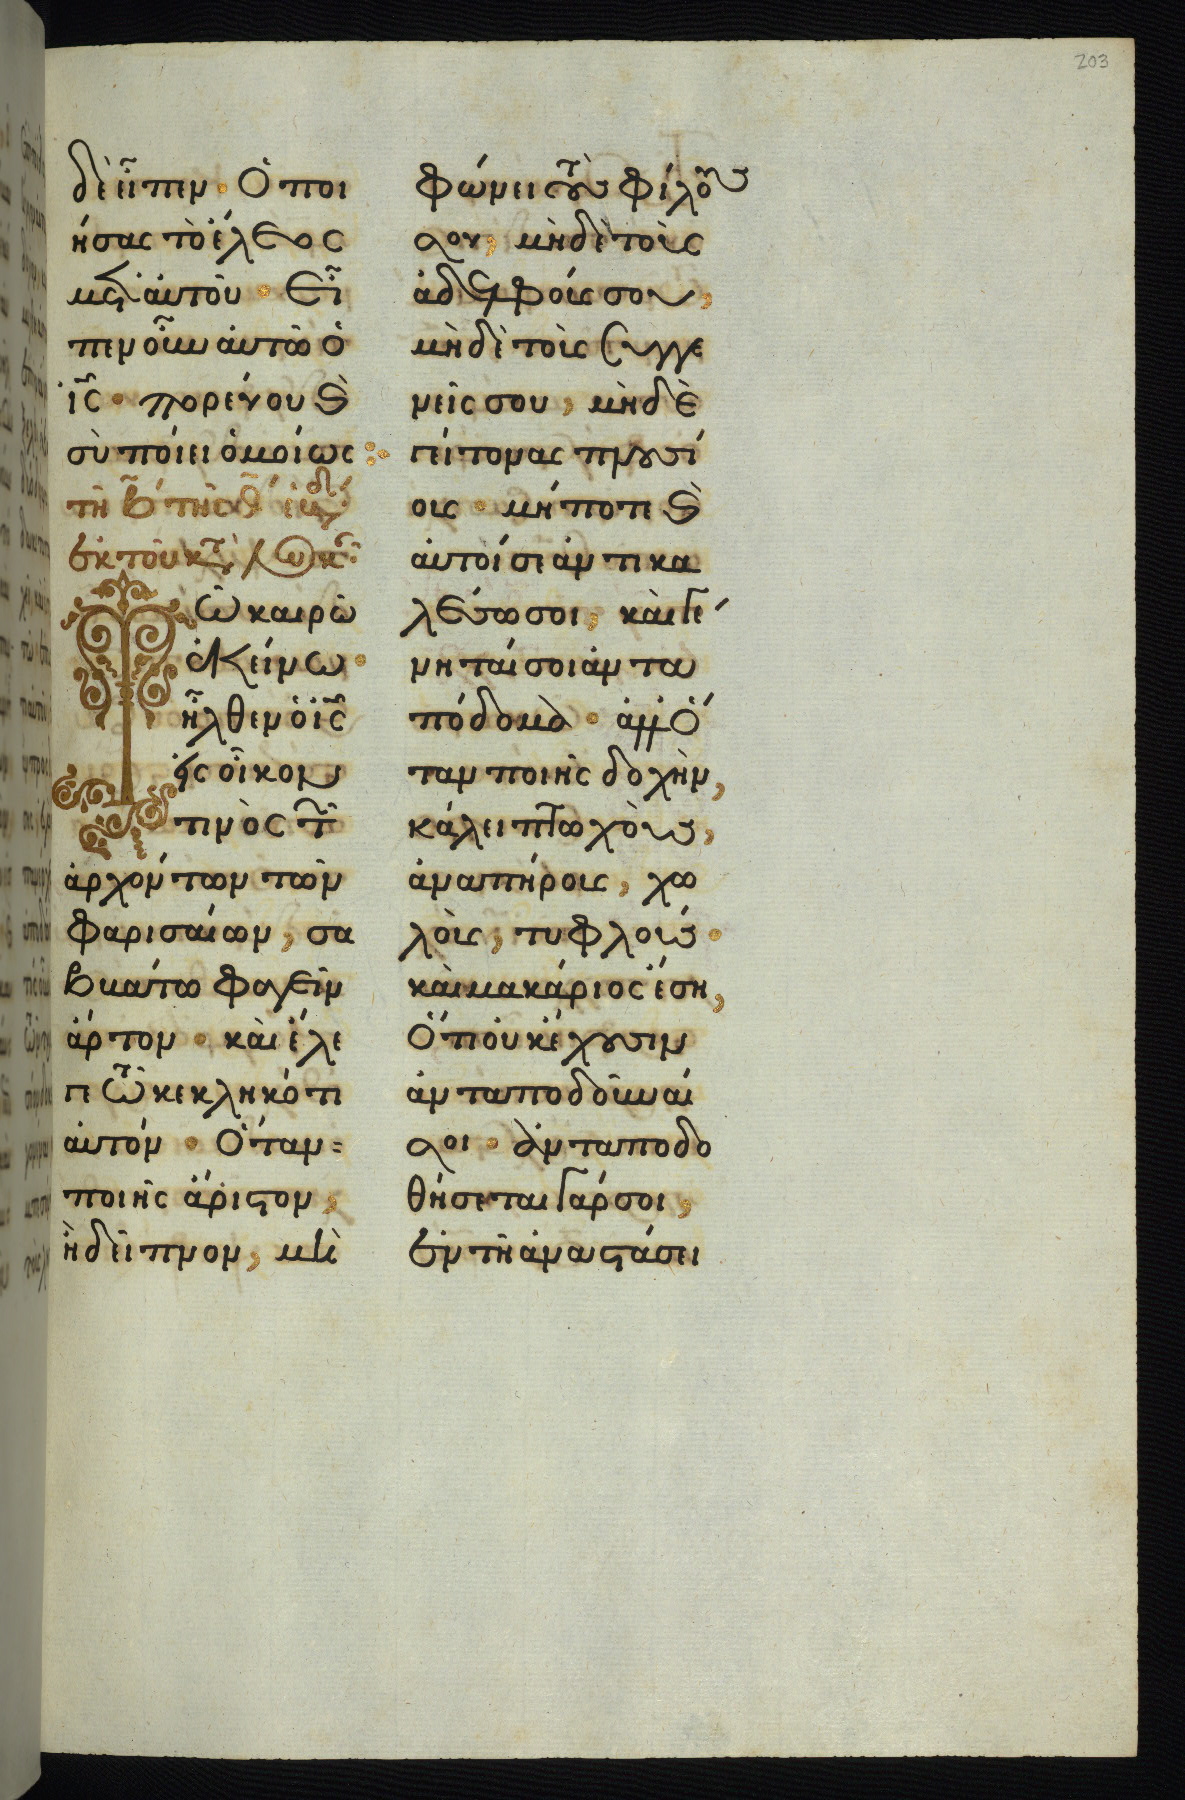 203
δὲ εἶπεν · Ὁ ποι
ήσας τὸ ἔλεος
μετ αὐτοῦ · Εἶ
πεν οὖν αὐτῶ ὁ
ἰς · πορεύου κ(αὶ)
σὺ ποίει ὁμοίως :·
ἐκ τοῦ κατ
ῶ καιρῶ
ἐκείνω ·
ἦλθεν ὁ ἰς
εἰς οἶκον
τινὸς τῶν
ἀρχόντων τῶν
φαρισαίων, σα
ββάτω φαγεῖν
ἄρτον · καὶ ἔλε
γε τῶ κεκληκότι
αὐτόν · Ὅταν=
ποιῆς ἄριστον,
ἢ δεῖπνον, μὴ
φώνει τοὺς φίλους
σου, μὴδὲ τοὺς
ἀδελφούς σου,
μὴδὲ τοὺς συγγε
νεῖς σου, μὴδὲ
γείτονας πλουσί
ους · μήποτε κ(αὶ)
αὐτοί σε ἀντικα
λέσωσοι, καὶ γέ
νηταί σοι ἀντα
πόδομα · ἀλλ ὅ
ταν ποιῆς δοχὴν,
κάλει πτωχοὺς,
ἀναπήρους, χω
λοὺς, τυφλούς ·
καὶ μακάριος ἔση,
Ὅτι οὐκ ἔχουσιν
ἀνταποδοῦναί
σοι · ἀνταποδο
θήσεται γάρ σοι,
ἐν τῆ ἀναστάσει